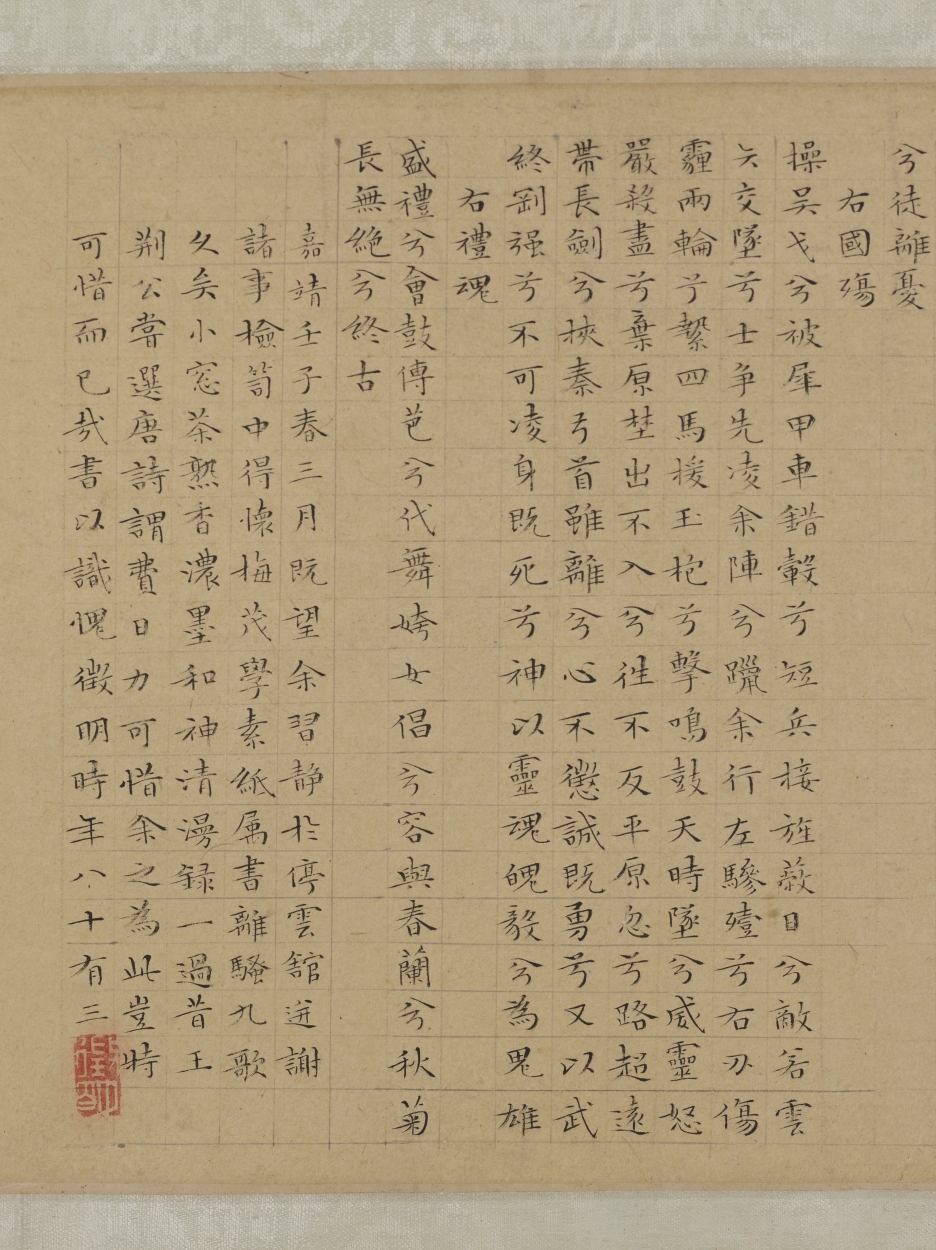 兮徒離憂
右國殤
操吳戈兮被犀甲車錯轂兮短兵接旌蔽日兮敵若雲
矢交墜兮士爭先凌余陣兮躐余行左驂殪兮右刃傷
霾兩輪兮縶四馬援玉枹兮擊鳴鼓天時墜兮威靈怒
嚴殺盡兮棄原埜出不入兮往不反平原忽兮路超遠
帶長劍兮挾秦弓首雖離兮心不懲誠既勇兮又以武
終剛强兮不可凌身既死兮神以靈魂魄毅兮為鬼雄
右禮魂
盛禮兮會鼓傳芭兮代舞姱女倡兮容與春蘭兮秋菊
長無絕兮終古
嘉靖壬子春三月既望余習靜於停雲館迸謝
諸事檢笥中得懷梅茂學素紙属書離騷九歌
久矣小窓茶熟香濃墨和神清漫録一過昔王
荆公嘗選唐詩謂費日力可惜余之為此豈時
可惜而已哉書以識愧徵明時年八十有三
徵明